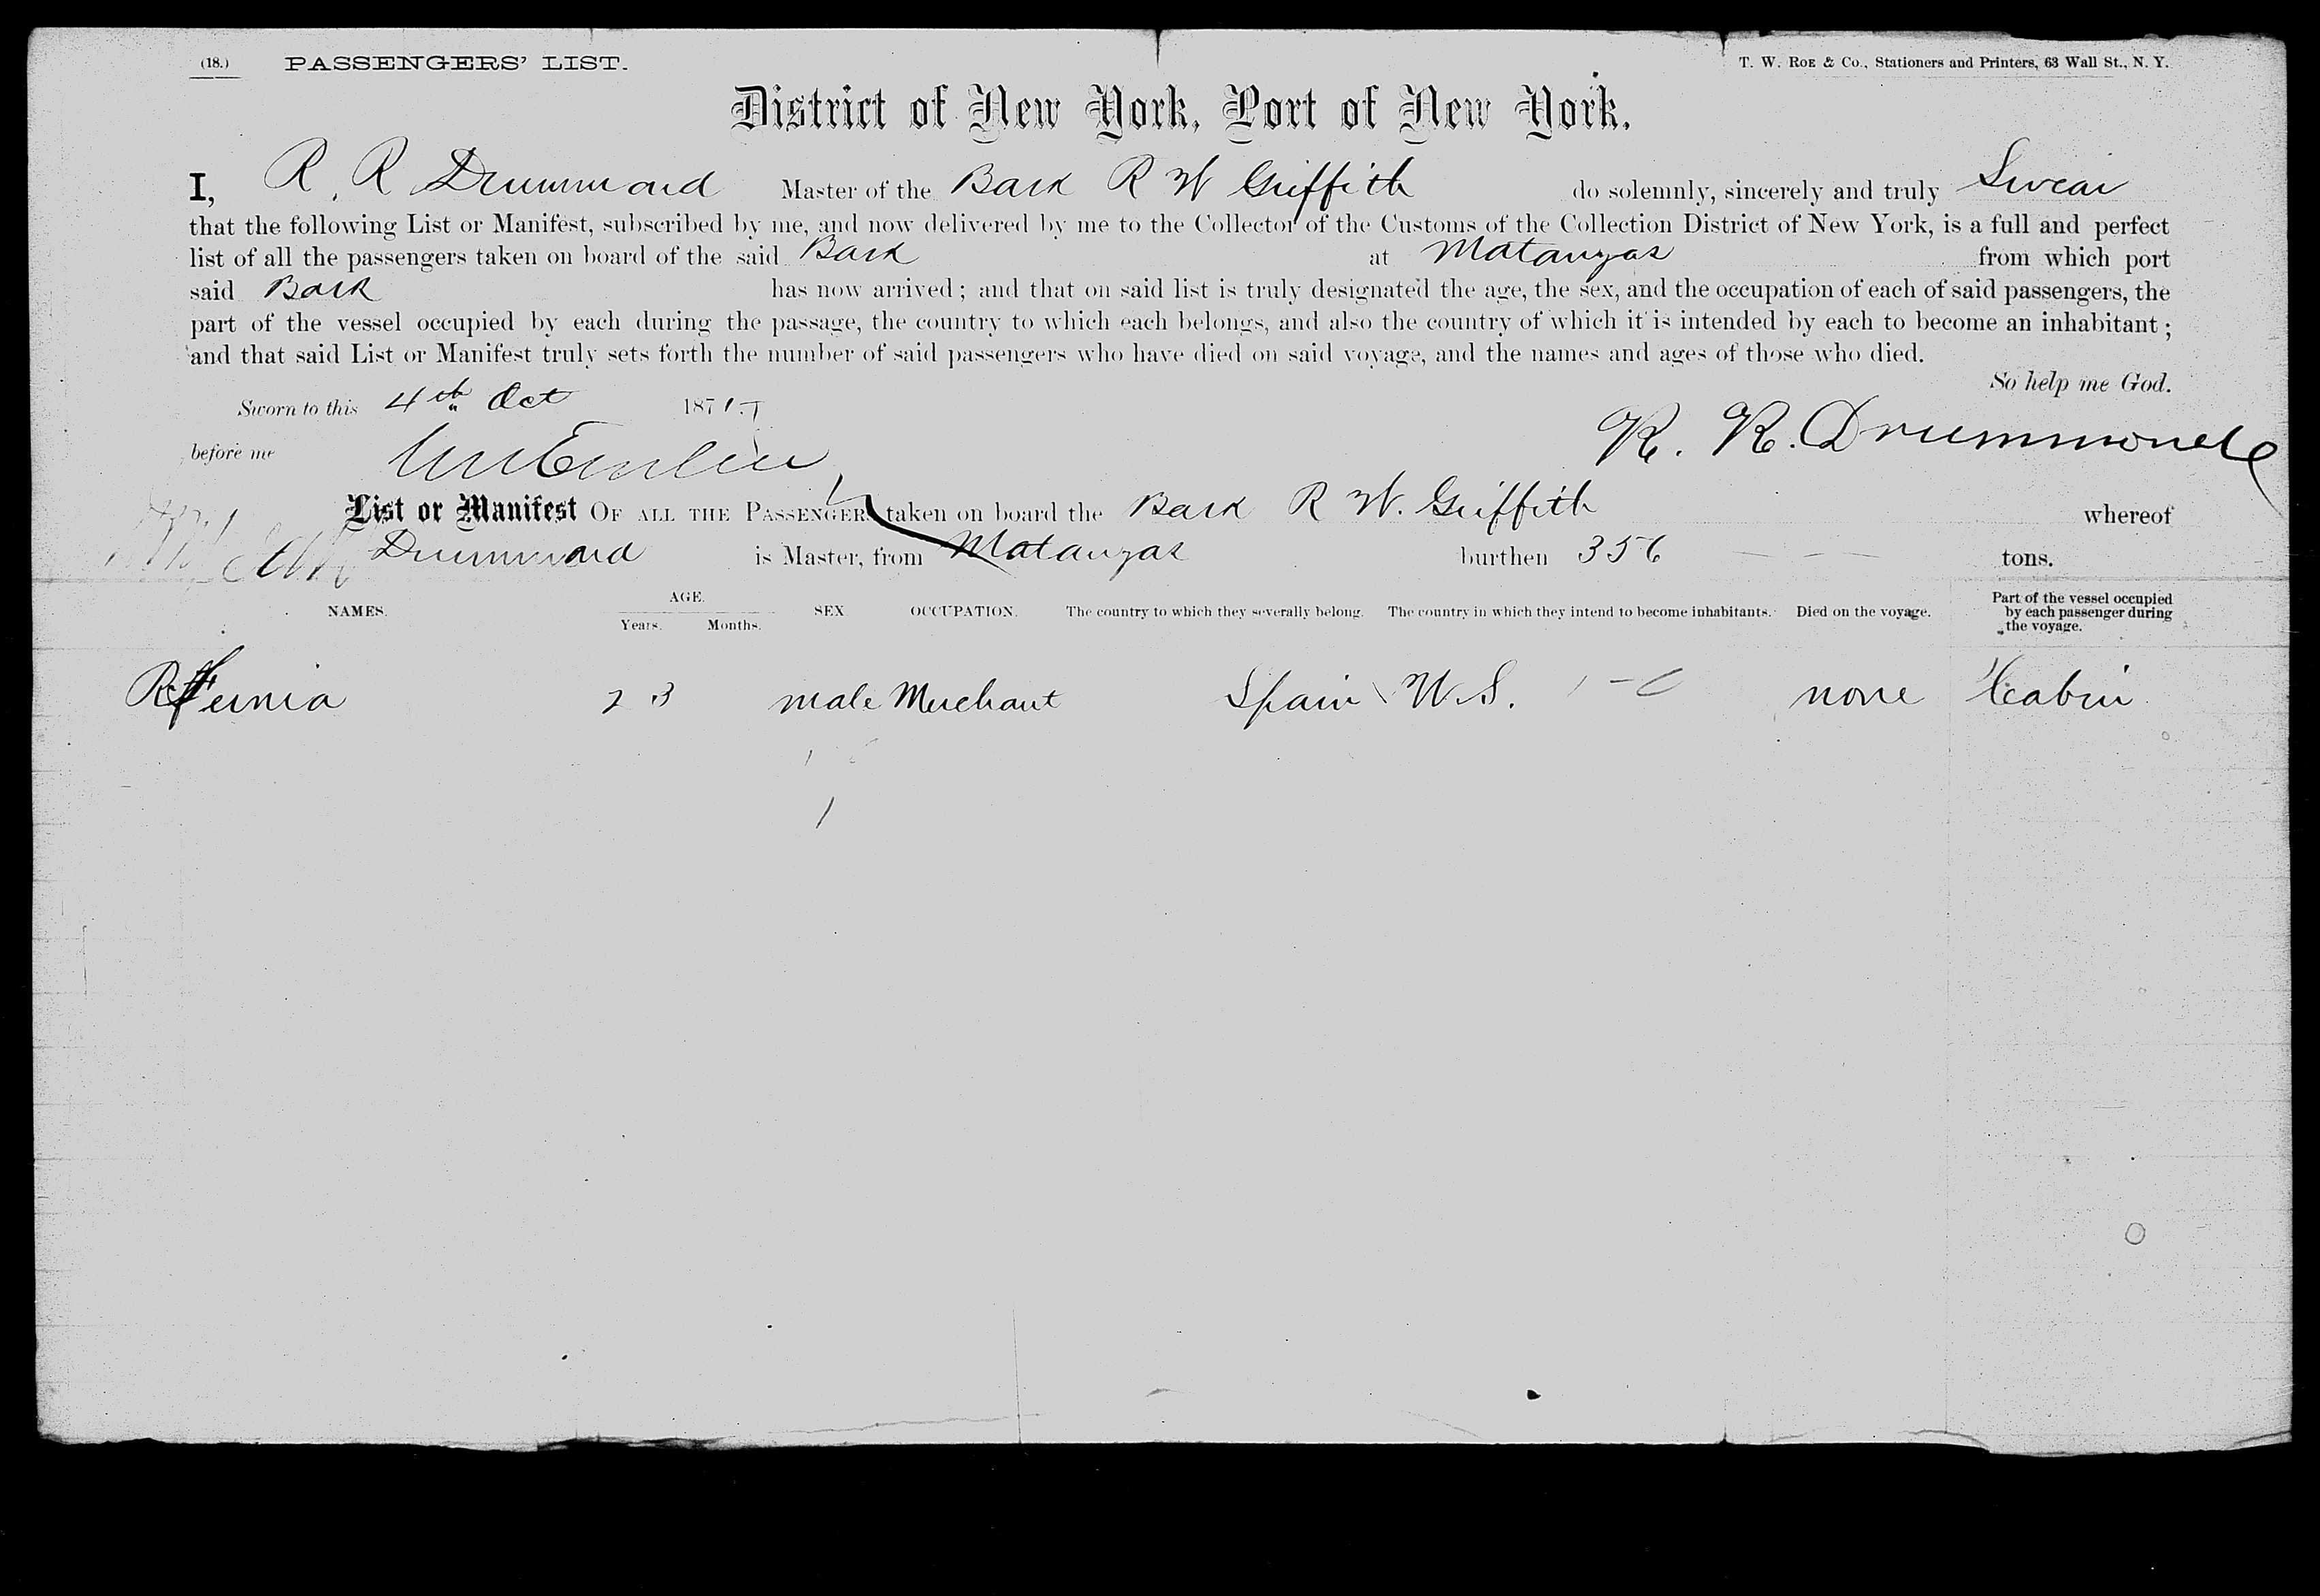 (18.) PASSENGERS' LIST. T. W. ROE & Co., Stationers and Printers, 63 Wall St., N. Y.
District of New York, Port of New York.
I, R. R Drummond Master of the Bark R W Griffith do solemnly, sincerely and truly Swear
that the following List or Manifest, subscribed by me, and now delivered by me to the Collector of the Customs of the Collection District of New York, is a full and perfect
list of all the passengers taken on board of the said Bark at Matanzas from which port
said Bark has now arrived; and that on said list is truly designated the age, the sex, and the occupation of each of said passengers, the
part of the vessel occupied by each during the passage, the country to which each belongs, and also the country of which it is intended by each to become an inhabitant;
and that said List or Manifest truly sets forth the number of said passengers who have died on said voyage, and the names and ages of those who died.
So help me God.
Sworn to this 4th Oct 187
before me
R. R. Drummond
List or Manifest OF ALL THE PASSENGERS taken on board the Bark R W. Griffith whereof
Drummond is Master, from Matanzas burthen 356 tons.
NAMES. AGE. Years. Months. SEX. OCCUPATION. The country to which they severally belong. The country in which they intend to become inhabitants. Died on the voyage. Part of the vessel occupied by each passenger during the voyage.
23 male Merchant Spain none Cabin